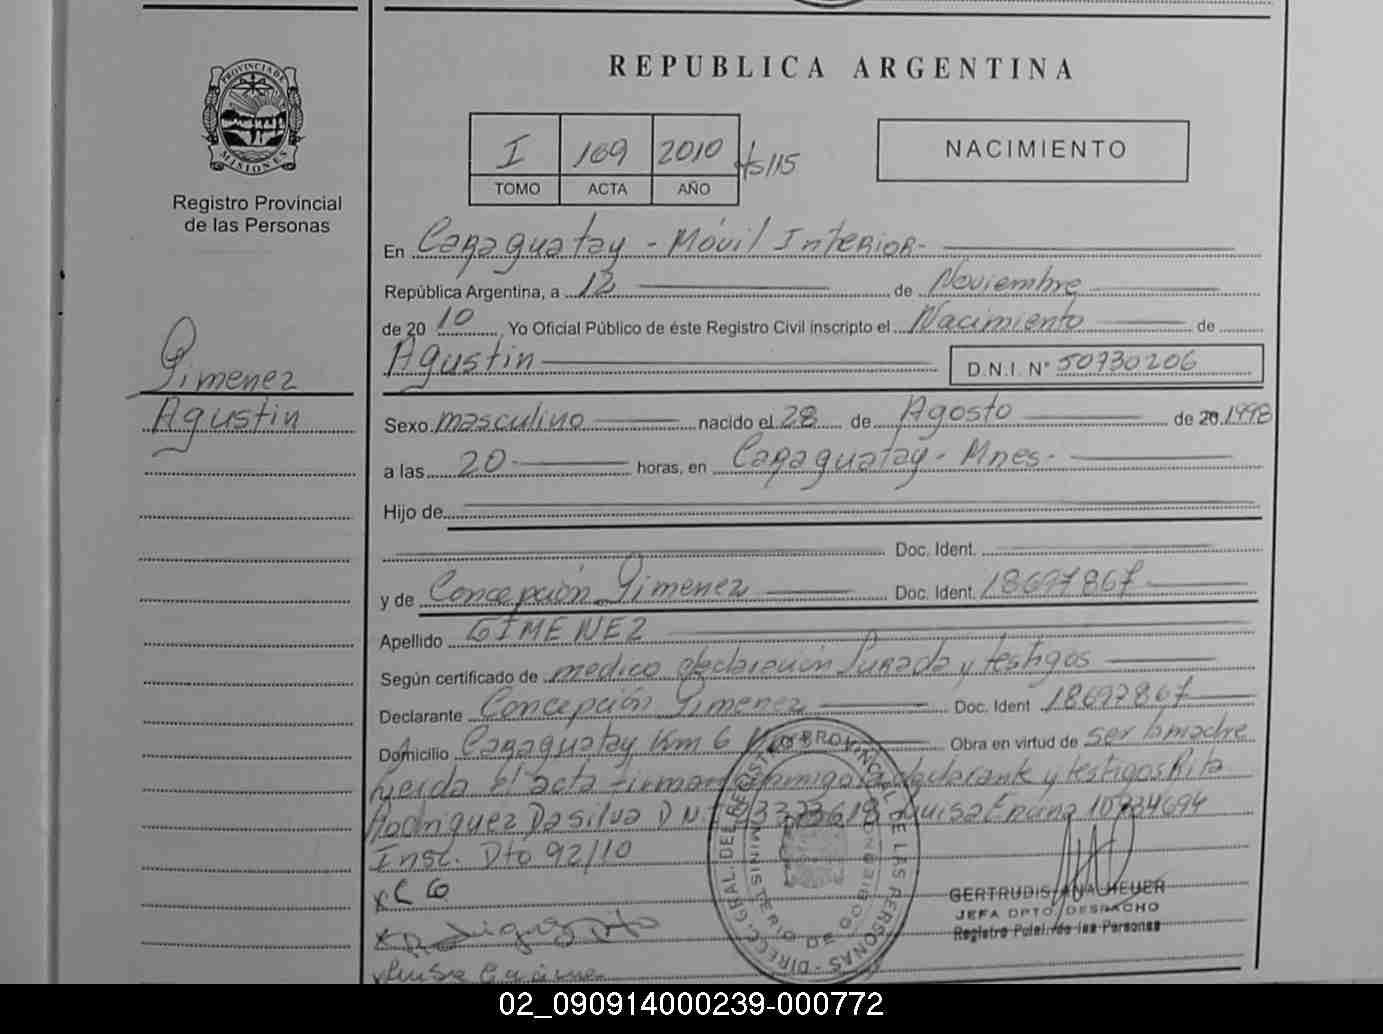 REPUBLICA ARGENTINA
PROVINCIA DE MISIONES
Registro Provincial
de las Personas
I 169 2010 Hs/15
TOMO ACTA AÑO
NACIMIENTO
En Caraguatay - Móvil Interior-
República Argentina, a 12 de Noviembre
de 2010, Yo Oficial Público de éste Registro Civil inscripto el Nacimiento de
Agustin D.N.I. Nº 50730206
Gimenez
Agustin
Sexo masculino nacido el 28 de Agosto de 20 1998
a las 20 horas, en Caraguatay - Mnes-
Hijo de
Doc. Ident.
y de Concepción Gimenez Doc. Ident. 18697867
Apellido GIMENEZ
Según certificado de medico declaración Jurada y testigos
Declarante Concepción Gimenez Doc. Ident 18697867
Domicilio Caraguatay Km 6 Obra en virtud de ser la madre
leida el acta firman conmigo la declarante y testigos Rita
Rodriguez Dasilva D.N.I. Luisa 10734694
Insc. Dto 92/10
x C G
DIRECC. GRAL. DEL REGISTRO PROVINCIAL DE LAS PERSONAS
MINISTERIO DE GOBIERNO
GERTRUDIS ANA HEUER
JEFA DPTO. DESPACHO
Registro Pcial. de las Personas
02_090914000239-000772